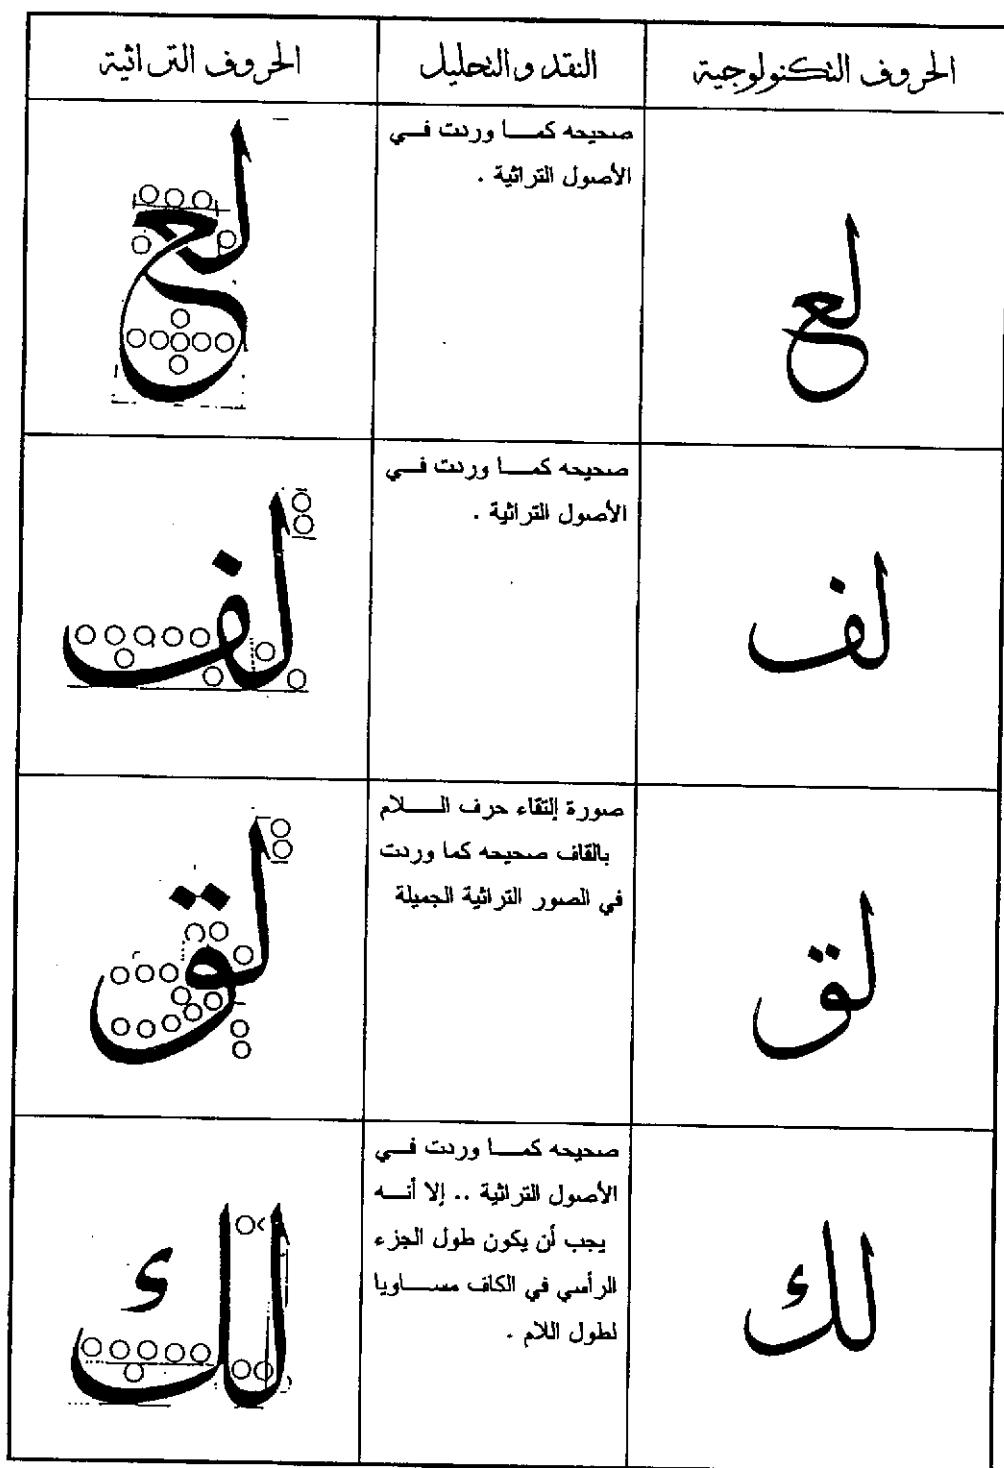 الحروف التكنولوجية
النقد والتحليل
الحروف التراثية
لع
صحيحه كمـــا وردت فـــي
الأصول التراثية .
لح
لف
صحيحه كمـــا وردت فـــي
الأصول التراثية .
لف
لق
صورة إلتقاء حرف الـــلام
بالقاف صحيحه كما وردت
في الصور التراثية الجميلة
لق
لك
صحيحه كمـــا وردت فـــي
الأصول التراثية .. إلا أنـــه
يجب أن يكون طول الجزء
الرأسي في الكاف مســـاويا
لطول اللام .
لك